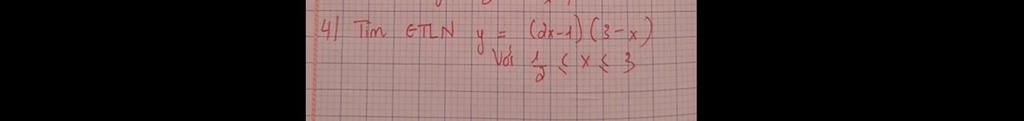 4) Tìm GTLN y = (2x-1)(3-x)
Với 1/2 ≤ x ≤ 3